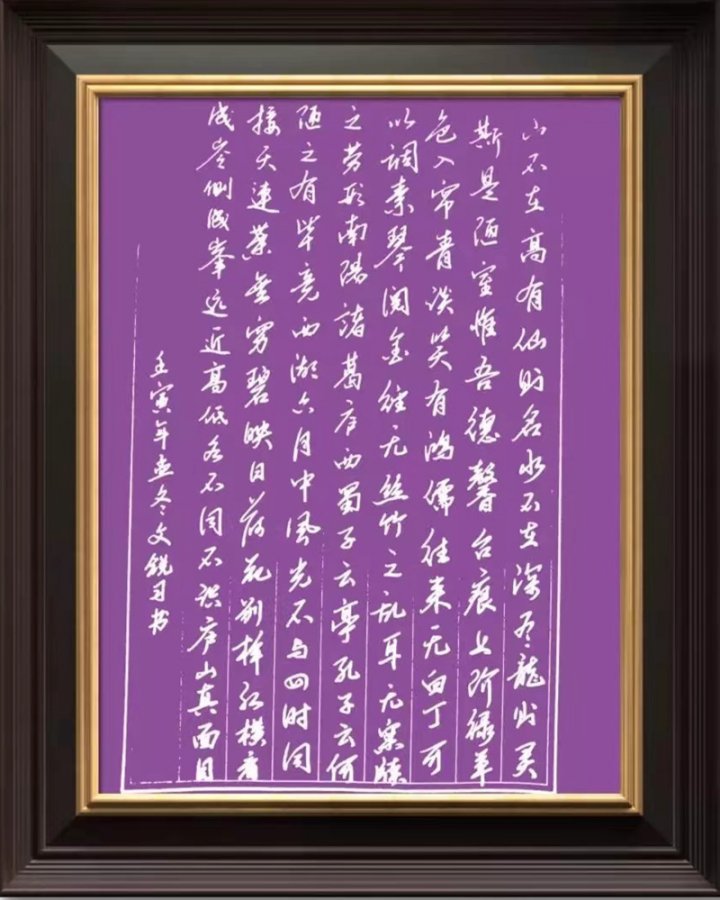 山不在高有仙则名水不在深有龙则灵
斯是陋室惟吾德馨台痕上阶绿草
色入帘青谈笑有鸿儒往来无白丁可
以调素琴阅金经无丝竹之乱耳无案牍
之劳形南阳诸葛庐西蜀子云亭孔子云何
陋之有毕竟西湖六月中风光不与四时同
接天连葉無穷碧映日荷花别样红横看
成岭侧成峯远近高低各不同不识庐山真面目
壬寅年孟冬文锐习书